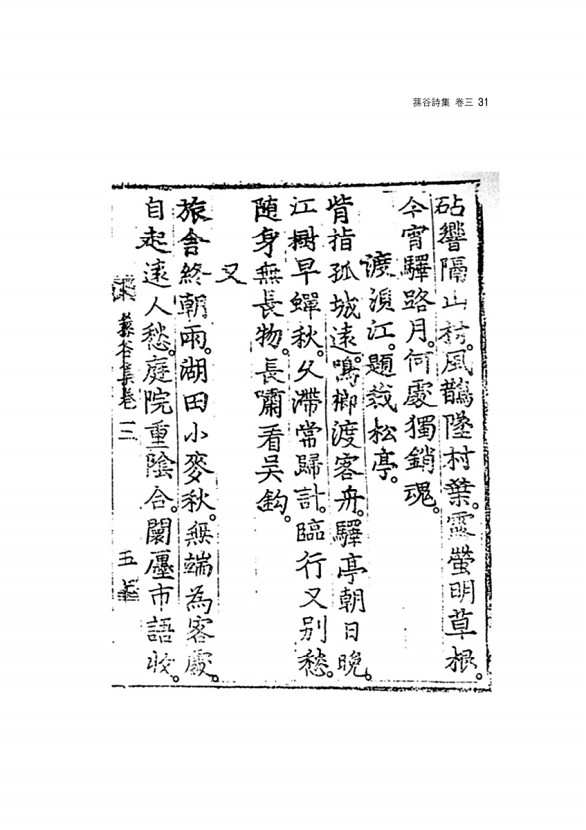 蓀谷詩集 卷三 31
砧響隔山村。風鵲墜村葉。露螢明草根。
今宵驛路月。何處獨銷魂。
渡浿江。題栽松亭。
背指孤城遠。鳴榔渡客舟。驛亭朝日晩。
江樹早蟬秋。久滯常歸計。臨行又別愁。
随身無長物。長嘯看吴鈎。
又
旅舍終朝雨。湖田小麥秋。無端為客處。
自起遠人愁。庭院重陰合。闤廛市語收。
蓀谷集卷三
五